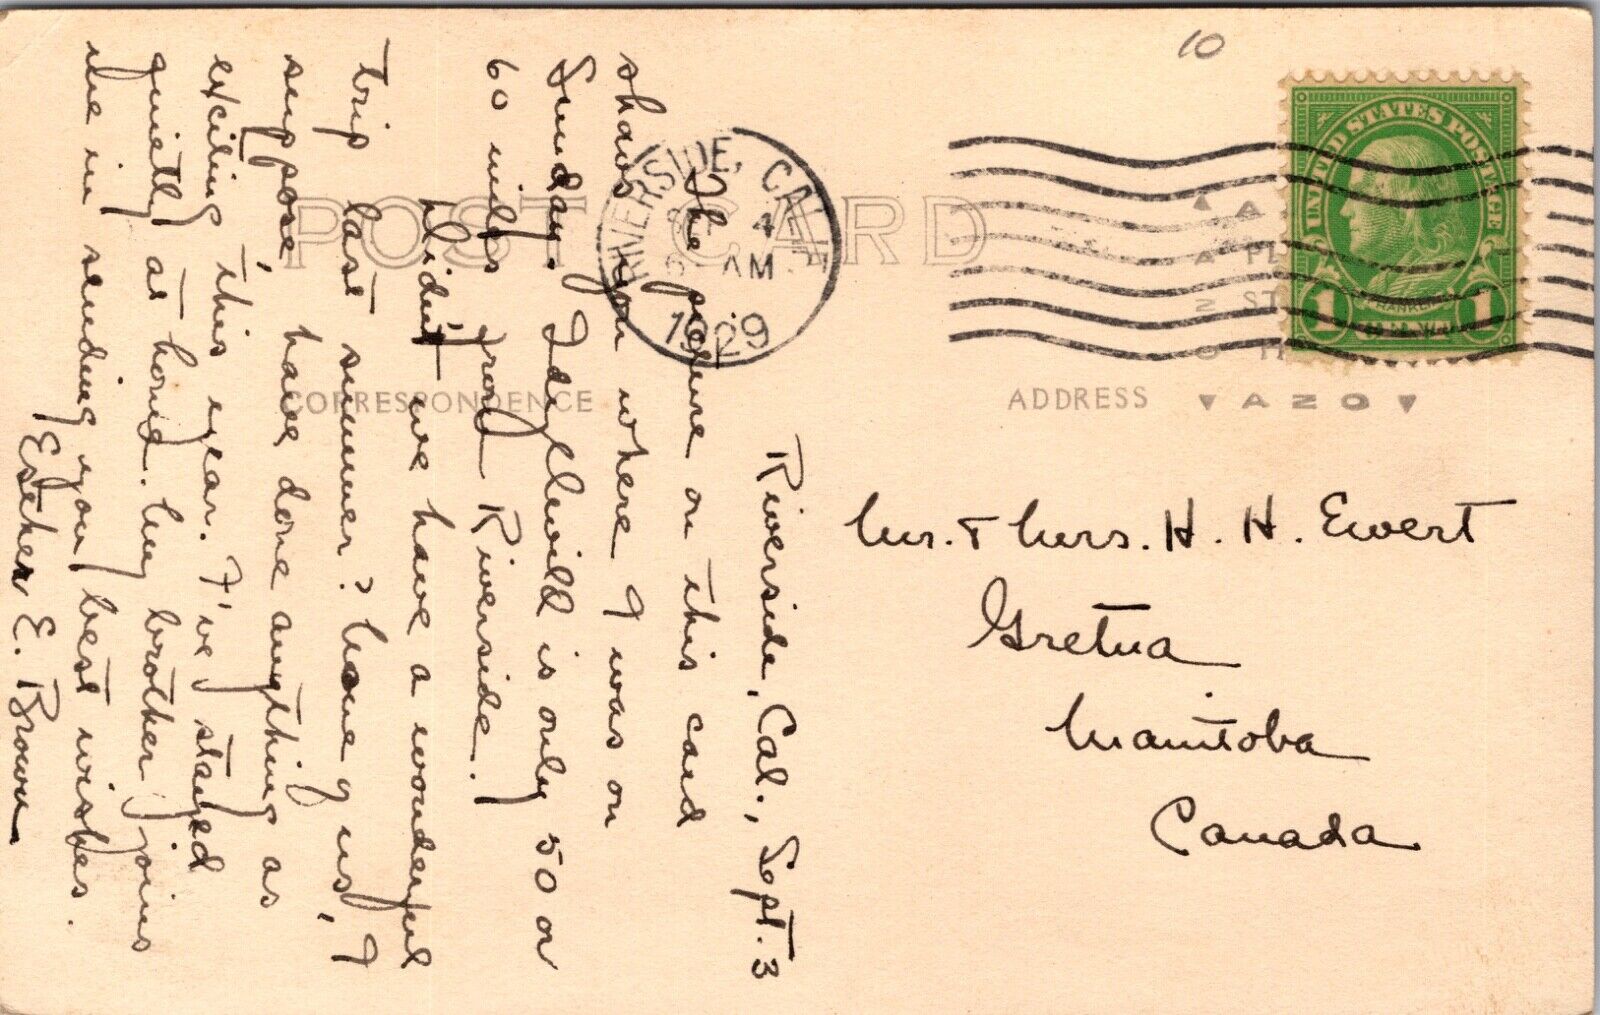 10
UNITED STATES POSTAGE
1 FRANKLIN 1
RIVERSIDE, CAL
4
AM
1929
POST CARD
CORRESPONDENCE
ADDRESS
AZO
Riverside, Cal., Sept. 3
The picture on this card
shows you where I was on
Sunday. Idyllwild is only 50 or
60 miles from Riverside.
Didn't we have a wonderful
trip last summer? None of us, I
suppose, have done anything as
exciting this year. I've stayed
quietly at home. My brother joins
me in sending you best wishes.
Esther E. Brown
Mr. & Mrs. H. H. Ewert
Gretna
Manitoba
Canada